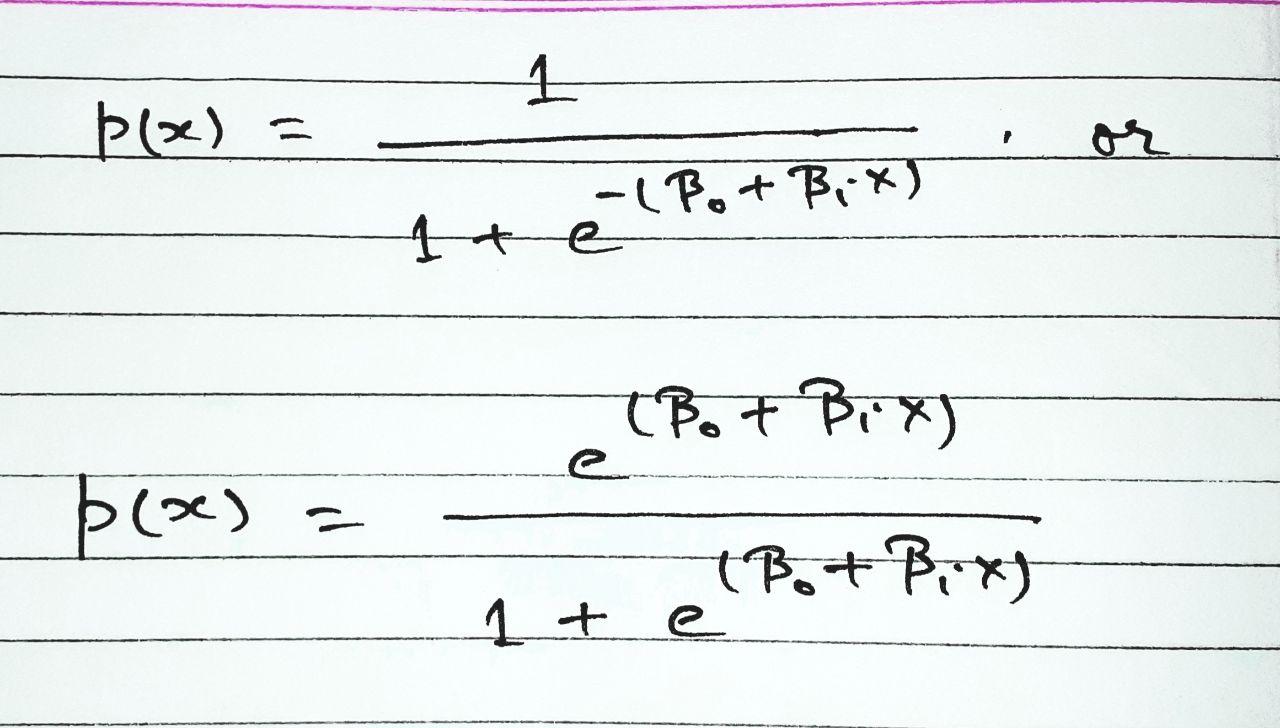 p(x) = 1 / (1 + e^-(β₀ + β₁·x)) , or
p(x) = e^(β₀ + β₁·x) / (1 + e^(β₀ + β₁·x))